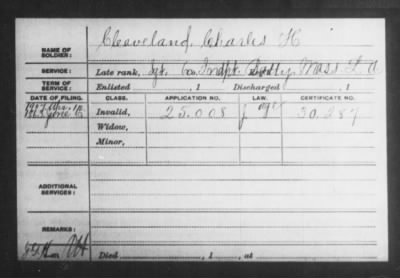 NAME OF SOLDIER: Cleaveland, Charles H
SERVICE: Late rank, Sgt. Co. Indpt. Batty Mass L. A
TERM OF SERVICE: Enlisted , 1 Discharged , 1
DATE OF FILING. CLASS. APPLICATION NO. LAW. CERTIFICATE NO.
Invalid, 25.008 30.287
Widow,
Minor,
ADDITIONAL SERVICES:
REMARKS:
Died , 1 , at